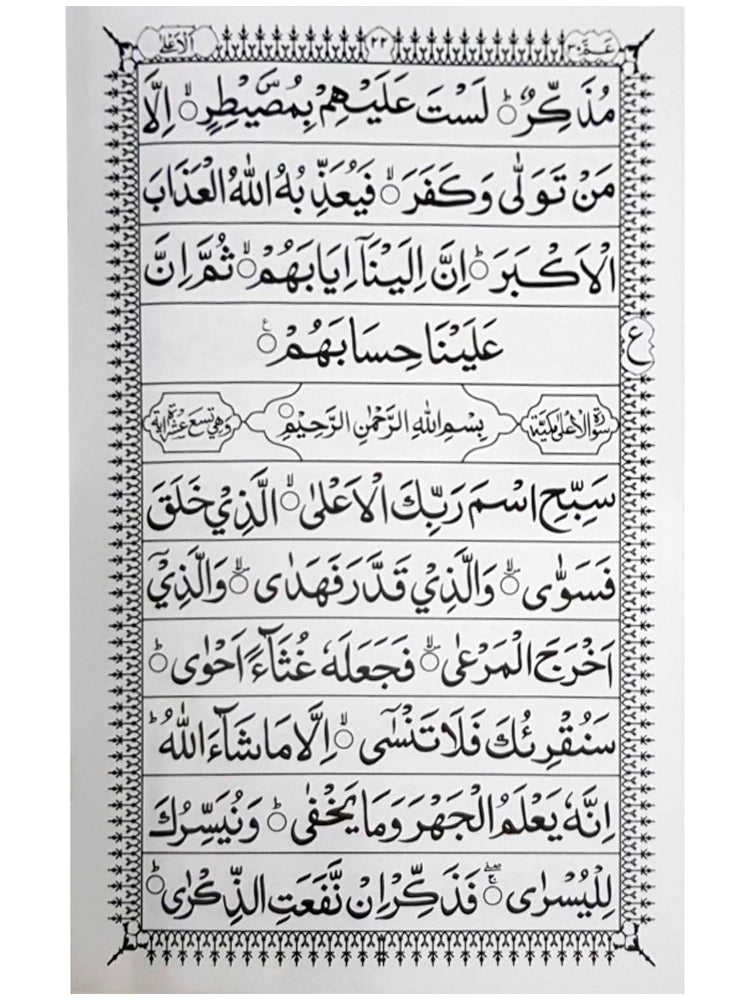 عمّ ٣٠ ٢٢ الاعلى
مُذَكِّرٌ ؕ لَسْتَ عَلَيْهِمْ بِمُصَۜيْطِرٍ ۙ اِلَّا
مَنْ تَوَلّٰى وَكَفَرَ ۙ فَيُعَذِّبُهُ اللّٰهُ الْعَذَابَ
الْاَكْبَرَ ؕ اِنَّ اِلَيْنَاۤ اِيَابَهُمْ ۙ ثُمَّ اِنَّ
عَلَيْنَا حِسَابَهُمْ ۧ
ع
سورة الاعلى مكية بِسْمِ اللّٰهِ الرَّحْمٰنِ الرَّحِيْمِ وهي تسع عشرة اية
سَبِّحِ اسْمَ رَبِّكَ الْاَعْلٰى ۙ الَّذِيْ خَلَقَ
فَسَوّٰى ۙ وَالَّذِيْ قَدَّرَ فَهَدٰى ۙ وَالَّذِيْۤ
اَخْرَجَ الْمَرْعٰى ۙ فَجَعَلَهٗ غُثَآءً اَحْوٰى ؕ
سَنُقْرِئُكَ فَلَا تَنْسٰۤى ۙ اِلَّا مَا شَآءَ اللّٰهُ ؕ
اِنَّهٗ يَعْلَمُ الْجَهْرَ وَمَا يَخْفٰى ؕ وَنُيَسِّرُكَ
لِلْيُسْرٰى ۚۖ فَذَكِّرْ اِنْ نَّفَعَتِ الذِّكْرٰى ؕ